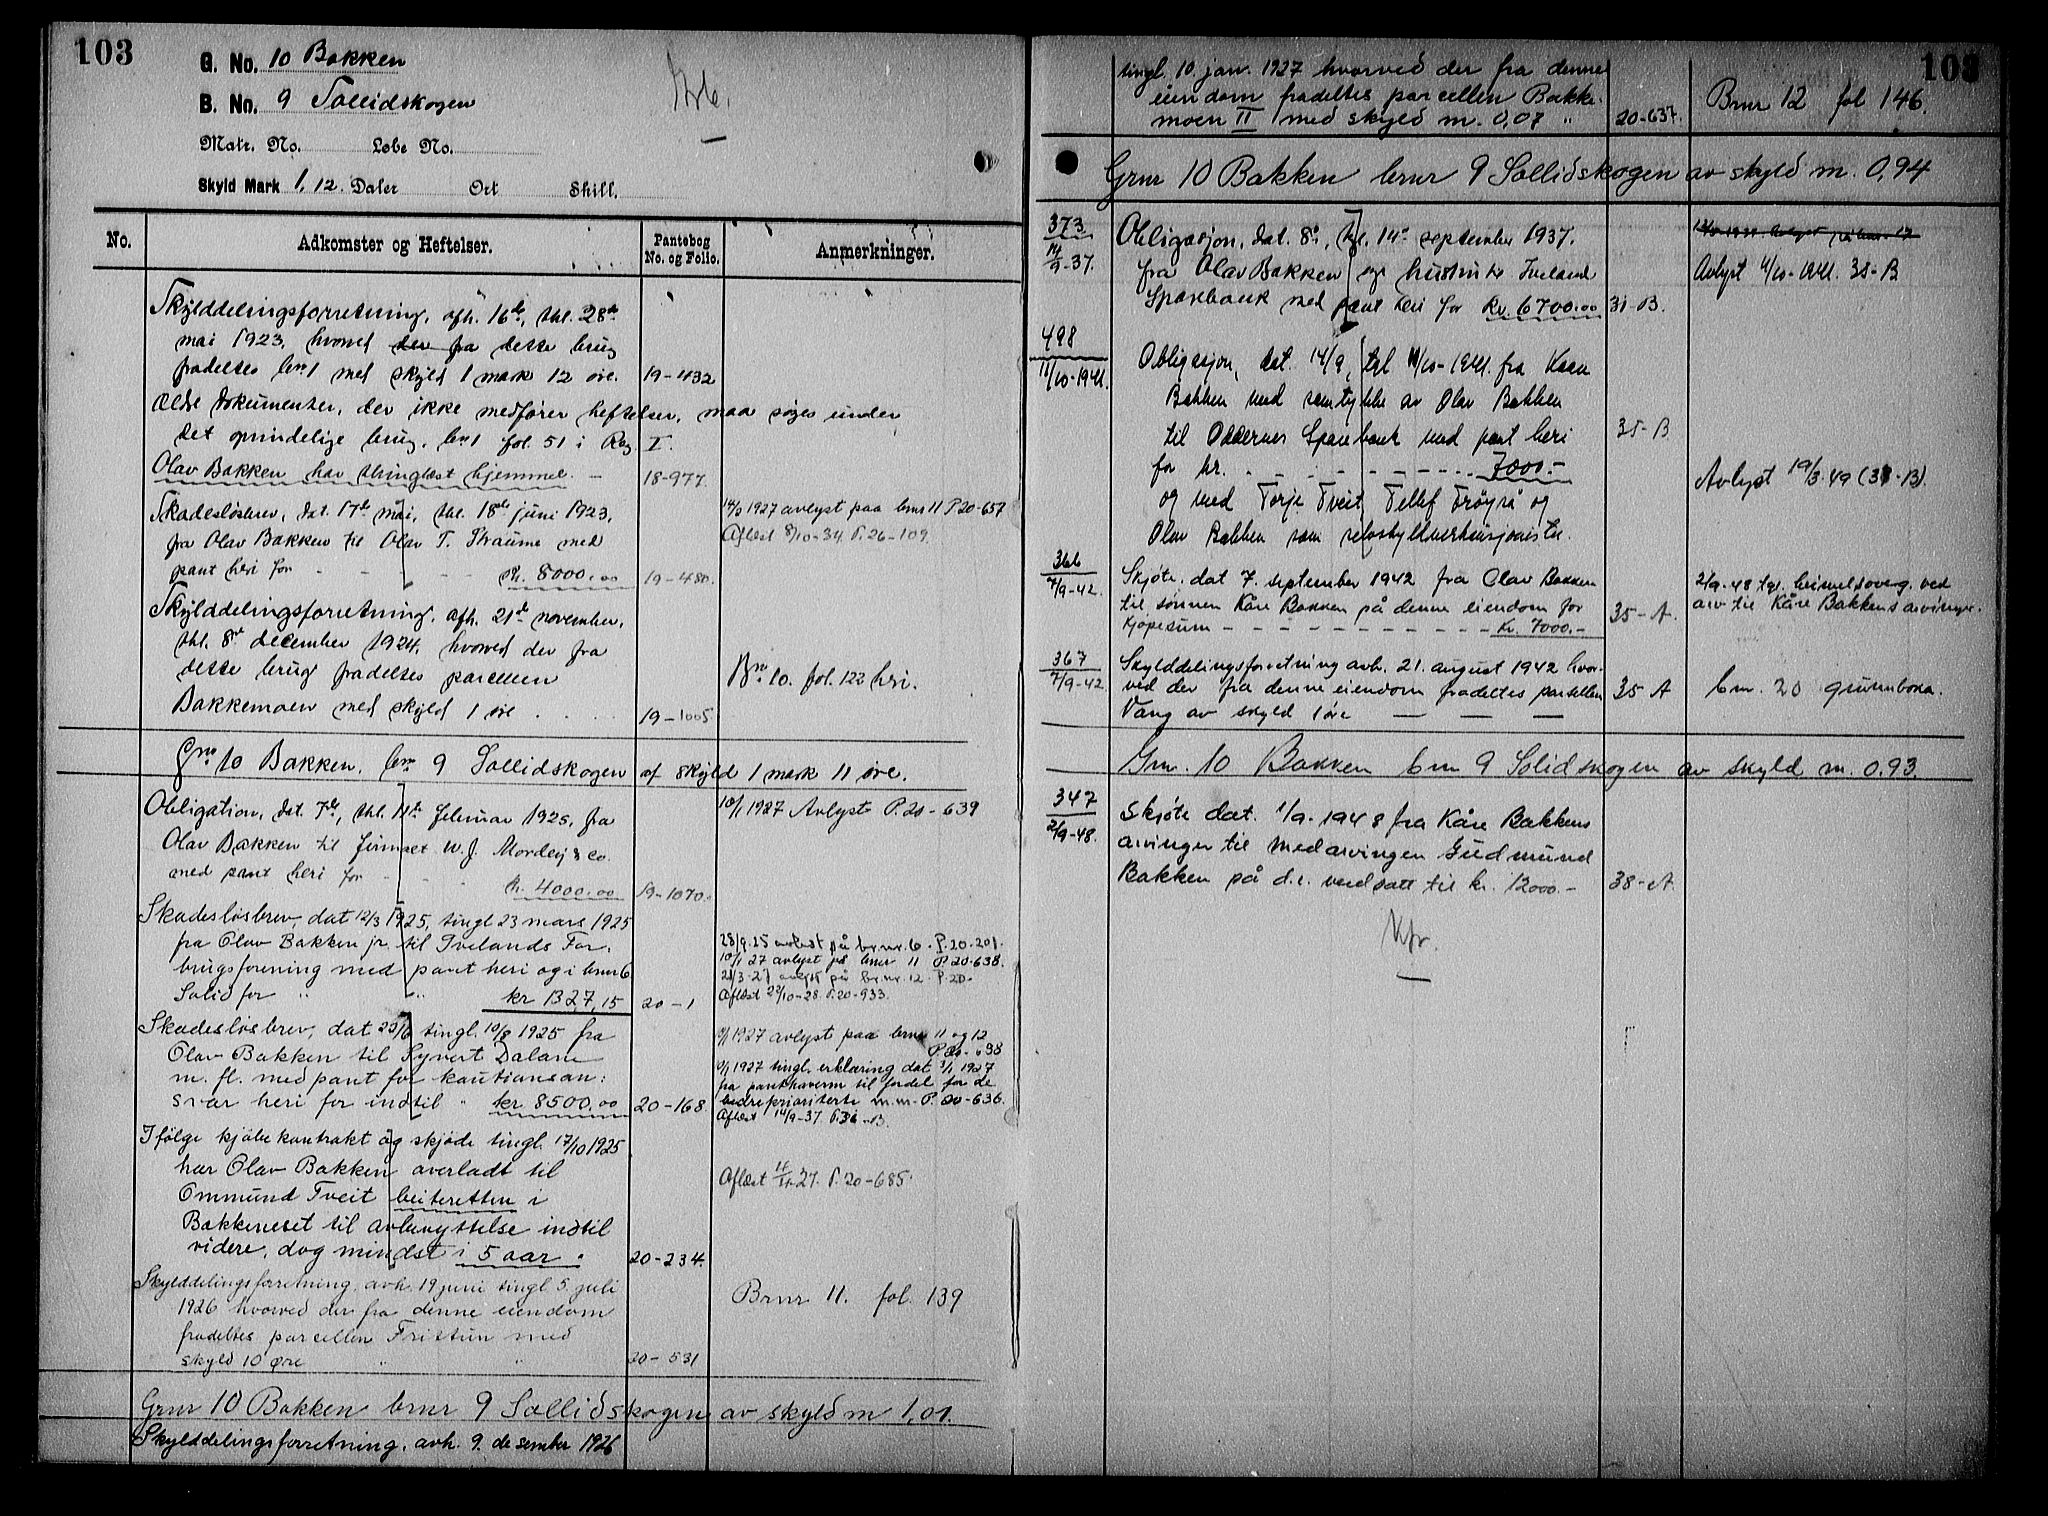 103
G. No. 10 Bakken
B. No. 9 Sollidskogen
Matr. No. Løbe No.
Skyld Mark 1, 12. Daler Ort Skill.
No.
Adkomster og Heftelser.
Pantebog No. og Folio.
Anmerkninger.
Skylddelingsforretning, afh. 16de, thl. 28de
mai 1923, hvorved der fra dette brug
fradeltes brn 1 med skyld 1 mark 12 øre. 19-432
Ældre dokumenter, der ikke medfører heftelser, maa søges under
det oprindelige brug, brn 1 fol. 51 i Reg. I.
Olav Bakken har thinglæst hjemmel. - 18-977.
Skadesløsbrev, dat. 17de mai, thl. 18de juni 1923, 14/3 1927 avlyst paa brnr 11 P 20-657
fra Olav Bakken til Olav T. Straume med Aflæst 8/10-34 P. 26-109.
pant heri for - - - kr. 8000.00 19-480.
Skylddelingsforretning, afh. 21de november,
thl. 8de december 1924, hvorved der fra
dette brug fradeltes parcellen Bn 10. fol. 122 heri.
Bakkemoen med skyld 1 øre . . . 19-1005
Gnr 10 Bakken, brn 9 Sollidskogen af skyld 1 mark 11 øre.
Obligation, dat. 7de, thl. 11te februar 1925, fra 10/1 1927 Avlyst P. 20-639
Olav Bakken til firmaet W. J. Mordey & Co.
med pant heri for - - - kr. 4000.00 19-1070.
Skadesløsbrev, dat 12/3 1925, tingl 23 mars 1925
fra Olav Bakken jr. til Ivelands For- 28/9.25 avlæst på br.nr. 6 - P. 20-201.
brugsforening med pant heri og i brnr 6 10/1 27 avlyst på brnr 11 P. 20-638.
avlyst på br.nr. 12. P. 20-
Solid for " " kr 1327,15 20-1 Aflæst 22/10-28. P. 20-933.
Skadesløsbrev, dat 22/6 tingl. 10/8 1925 fra 1927 avlyst paa brnr 11 og 12
Olav Bakken til Syvert Dalane P 20-638
m. fl. med pant for kautionsan: 1927 tingl. erklæring dat 3/1 1927
fra panthaverne til fordel for de
svar heri for indtil " kr 8500.00 20-168 bedreprioriterte m.m. P. 20-636.
Aflæst 14/9-37. P. 31-B.
Ifølge kjøbekontrakt og skjøde tingl. 17/10 1925
har Olav Bakken averladt til
Ommund Tveit beiteretten i Aflæst 27. P. 20-685.
Bakkeneset til avbenyttelse indtil
videre, dog mindst i 5 aar. 20-234.
Skylddelingsforretning, avh. 19 juni tingl 5. juli
1926 hvorved der fra denne eiendom Brnr 11. fol. 139
fradeltes parcellen Fristun med
skyld 10 øre " " 20-531
Grnr 10 Bakken brnr 9 Sollidskogen av skyld m 1,01.
Skylddelingsforretning, avh. 9. desember 1926
103
tingl. 10. jan. 1927 hvorved der fra denne
eiendom fradeltes parcellen Bakke- Brnr 12 fol 146.
moen II med skyld m. 0,07 " 20-637.
Grnr 10 Bakken brnr 9 Sollidskogen av skyld m. 0,94
373
14/9-37.
Obligasjon, dat. 8de, tgl. 14de september 1937.
fra Olav Bakken og hustru til Iveland Avlyst 11/10-1941. 35-B
Sparebank med pant heri for kr. 6700.00 31-B.
498
11/10-1941.
Obligasjon, dat. 14/9, tgl 11/10-1941. fra Kåre
Bakken med samtykke av Olav Bakken
til Oddernes Sparebank med pant heri 35-B
for kr. - - - - 7000.- Avlyst 19/3.49 (38-B).
og med Terje Tveit, Tellef Frøyså og
Olav Bakken som selvskyldnerkausjonister.
366
7/9-42.
Skjøte, dat 7. september 1942 fra Olav Bakken 2/9-48 tgl. heimelsoverg. ved
til sønnen Kåre Bakken på denne eiendom for arv til Kåre Bakkens arvinger.
kjøpesum - - - - kr. 7000.- 35-A.
367
7/9-42
Skylddelingsforretning avh. 21. august 1942 hvor-
ved der fra denne eiendom fradeltes parsellen 35-A bnr. 20 grunnboka.
Vang av skyld 1 øre - - -
Gnr. 10 Bakken bnr 9 Solidskogen av skyld m. 0.93.
347
2/9-48.
Skjøte dat. 1/9-1948 fra Kåre Bakkens
arvinger til medarvingen Gudmund
Bakken på d.e. verdsatt til kr. 12000.- 38-A.
Kfr.